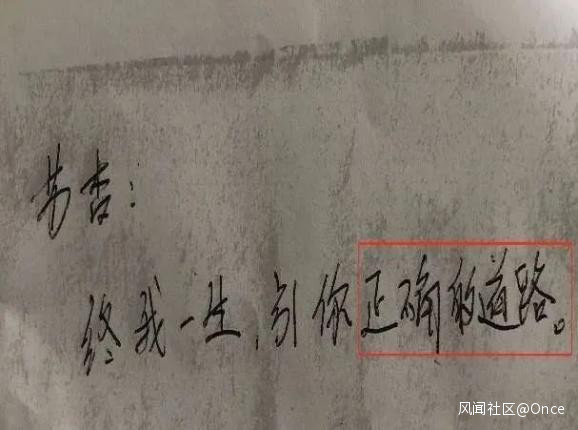 芳杏：
终我一生，引你正确的道路。
风闻社区@Once